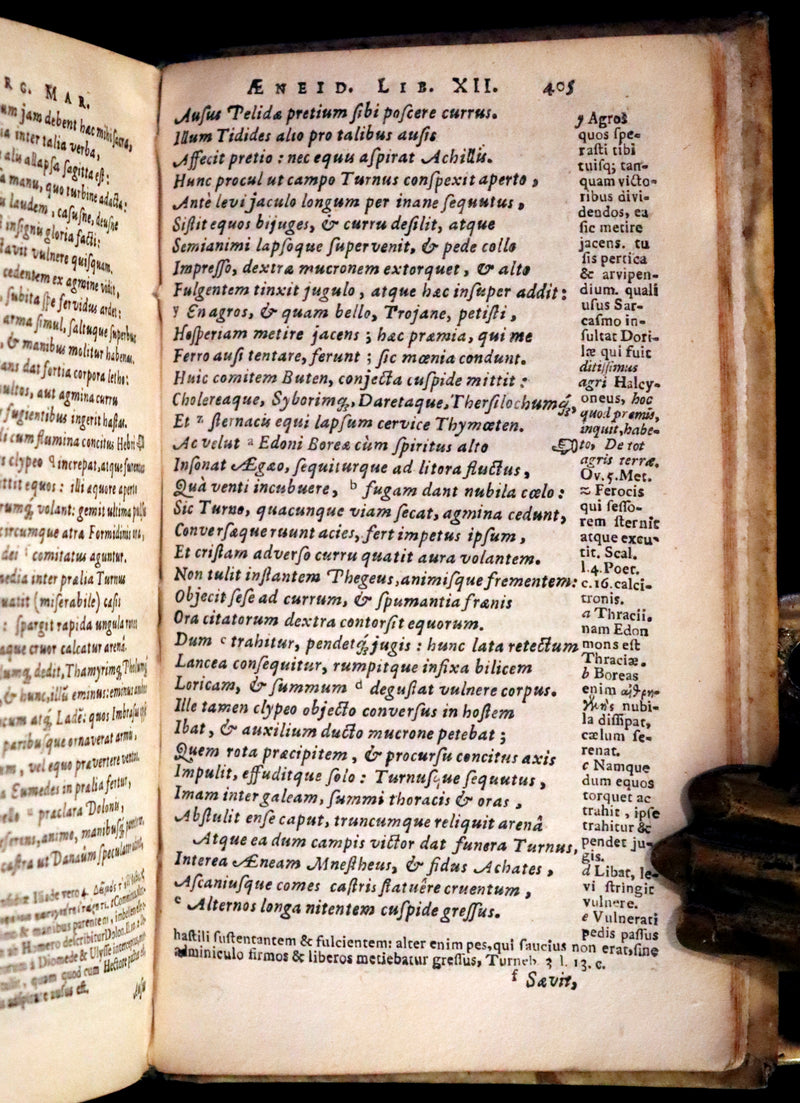 RG. MAR.
um jam debent hæc mihi sacra,
ia inter talia verba,
alis allapsa sagitta est:
a manu, quo turbine adacta:
laudem, casusne, deusne
insignis gloria facti:
tavit vulnere quisquam.
cedentem ex agmine vidit,
subita spe fervidus ardet:
arma simul, saltuque superbus
& manibus molitur habenas.
ans dat fortia corpora letho:
ultos, aut agmina curru
fugientibus ingerit hastas.
li cum flumina concitus Hebri
clypeo increpat, atque furentes
ittit equos: illi æquore aperto
volant: gemit ultima pulsu
circumque atra Formidinis ora,
dei comitatus aguntur.
media inter prælia Turnus
quatit (miserabile) cæsis
: spargit rapida ungula rores
aque cruor calcatur arenâ.
dedit, Thamyrimq, Pholumq;
& hunc, illũ eminus: eminus ambos
cum atq, Ladẽ: quos Imbrasus ipse
paribusque ornaverat armis,
um, vel equo prævertere ventos.
a Eumedes in prælia fertur,
præclara Dolonis,
animo, manibusq; parentem,
castra ut Danaûm speculator
ÆNEID. LIB. XII. 405
Ausus Pelidæ pretium sibi poscere currus.
Illum Tidides alio pro talibus ausis
Affecit pretio: nec equis aspirat Achillis.
Hunc procul ut campo Turnus conspexit aperto,
Antè levi jaculo longum per inane sequutus,
Sistit equos bijuges, & curru desilit, atque
Semianimi lapsoque supervenit, & pede collo
Impresso, dextræ mucronem extorquet, & alto
Fulgentem tinxit jugulo, atque hæc insuper addit:
y En agros, & quam bello, Trojane, petisti,
Hesperiam metire jacens; hæc præmia, qui me
Ferro ausi tentare, ferunt; sic mœnia condunt.
Huic comitem Buten, conjecta cuspide mittit:
Cholereaque, Syborimq;, Daretaque, Thersilochumq;,
Et z sternacis equi lapsum cervice Thymœten.
Ac velut a Edoni Boreæ cùm spiritus alto
Insonat Ægæo, sequiturque ad litora fluctus,
Quà venti incubuere, b fugam dant nubila cœlo:
Sic Turno, quacunque viam secat, agmina cedunt,
Conversæque ruunt acies, fert impetus ipsum,
Et cristam adverso curru quatit aura volantem.
Non tulit instantem Phegeus, animisque frementem:
Objecit sese ad currum, & spumantia frænis
Ora citatorum dextra contorsit equorum.
Dum c trahitur, pendetq; jugis: hunc lata retectum
Lancea consequitur, rumpitque infixa bilicem
Loricam, & summum d degustat vulnere corpus.
Ille tamen clypeo objecto conversus in hostem
Ibat, & auxilium ducto mucrone petebat;
Quem rota præcipitem, & procursu concitus axis
Impulit, effuditque solo: Turnusque sequutus,
Imam inter galeam, summi thoracis & oras,
Abstulit ense caput, truncumque reliquit arenâ
Atque ea dum campis victor dat funera Turnus,
Interea Æneam Mnestheus, & fidus Achates,
Ascaniusque comes castris statuêre cruentum,
e Alternos longa nitentem cuspide gressus.
y Agros
quos spe-
rasti tibi
tuisq; tan-
quam victo-
ribus divi-
dendos, ea
sic metire
jacens. tu
sis pertica
& arvipen-
dium. quali
usus Sar-
casmo in-
sultat Dori-
læ qui fuit
ditissimus
agri Halcy-
oneus, hoc
quod premis,
inquit, habe-
to, De tot
agris terræ.
Ov. 5. Met.
z Ferocis
qui sesso-
rem sternit
atque excu-
tit. Scal.
l. 4. Poet.
c. 16. calci-
tronis.
a Thracii.
nam Edon
mons est
Thraciæ.
b Boreas
enim αἰθρη-
γενὴς nubi-
la dissipat,
cælum se-
renat.
c Namque
dum equos
torquet ac
trahit, ipse
trahitur &
pendet ju-
gis.
d Libat, le-
vi stringit
vulnere.
e Vulnerati
pedis passus
hastili sustentantem & fulcientem: alter enim pes, qui saucius non erat, sine
adminiculo firmos & liberos metiebatur gressus, Turneb. 3 l. 13. c.
f Sævit,